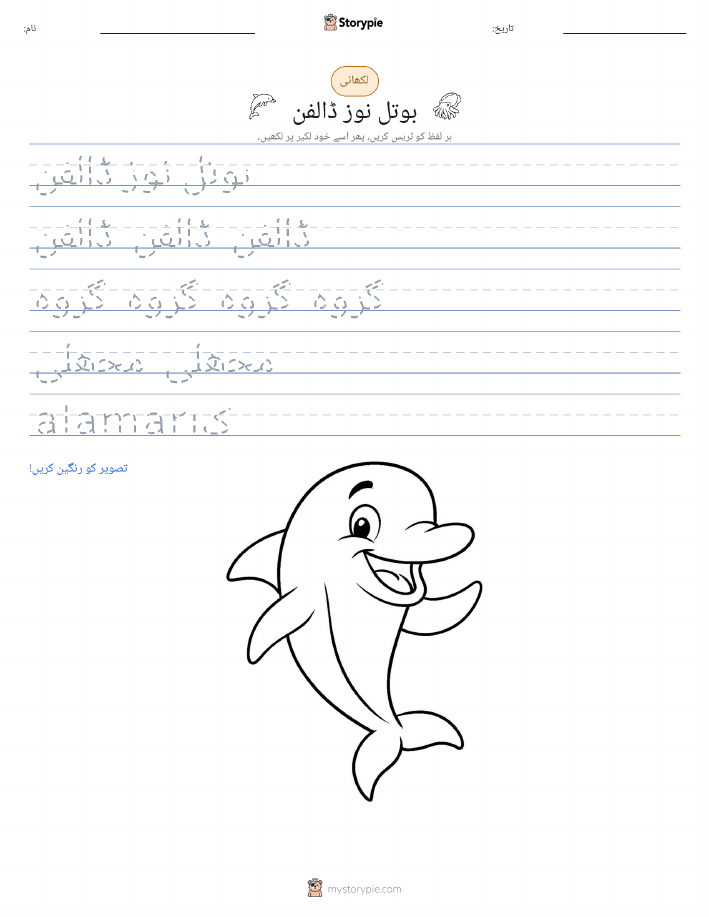 نام:
Storypie
تاریخ:
لکھائی
بوتل نوز ڈالفن
ہر لفظ کو ٹریس کریں، پھر اسے خود لکیر پر لکھیں۔
بوتل نوز ڈالفن
ڈالفن ڈالفن ڈالفن
گروہ گروہ گروہ گروہ
مچھلی مچھلی
تصویر کو رنگین کریں!
mystorypie.com